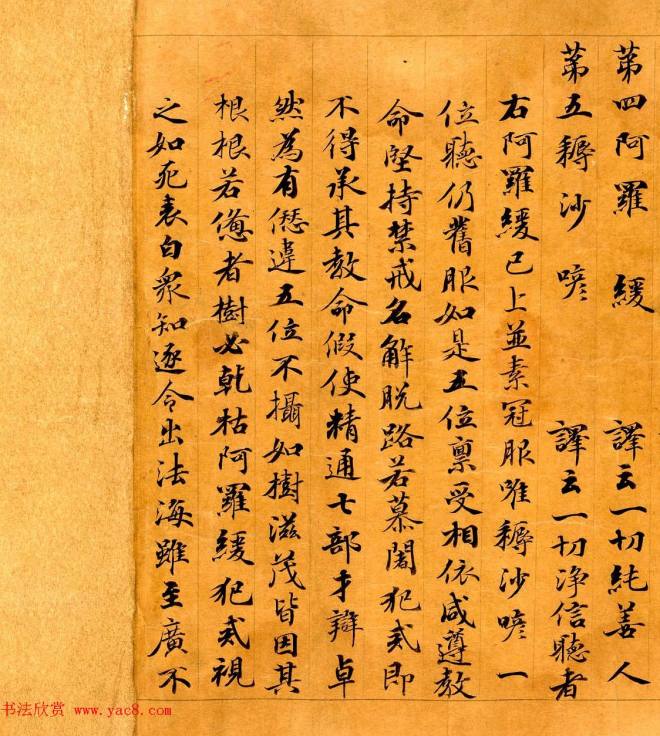 第四阿羅 緩 譯云一切純善人
第五耨沙喭 譯云一切淨信聽者
右阿羅緩已上並素冠服唯耨沙喭一
位聽仍舊服如是五位禀受相依咸遵教
命堅持禁戒名解脱路若慕闍犯戒即
不得承其教命假使精通七部才辯卓
然為有僁違五位不攝如樹滋茂皆因其
根根若憊者樹必乾枯阿羅緩犯戒視
之如死表白衆知逐令出法海雖至廣不
书法欣赏 www.yac8.com